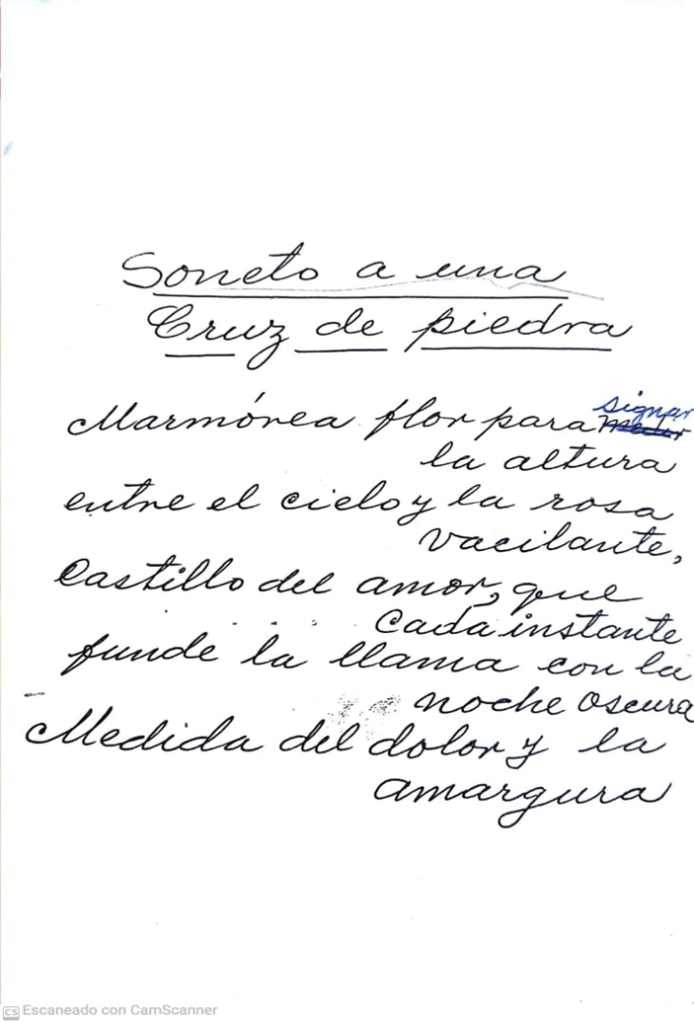 Soneto a una
Cruz de piedra
signar
Marmórea flor para medir
la altura
entre el cielo y la rosa
vacilante,
Castillo del amor, que
cada instante
funde la llama con la
noche oscura
Medida del dolor y la
amargura
CS Escaneado con CamScanner